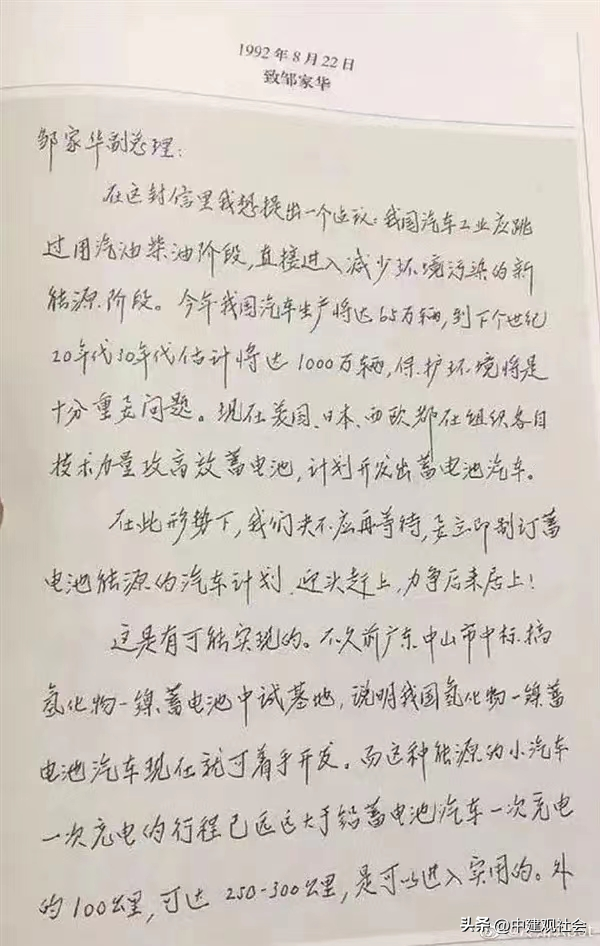 1992年8月22日
致邹家华
邹家华副总理：
在这封信里我想提出一个建议：我国汽车工业应跳
过用汽油柴油阶段，直接进入减少环境污染的新
能源阶段。今年我国汽车生产将达65万辆，到下个世纪
20年代30年代估计将达1000万辆，保护环境将是
十分重要问题。现在美国、日本、西欧都在组织各自
技术力量攻高效蓄电池，计划开发出蓄电池汽车。
在此形势下，我们决不应再等待，要立即制订蓄
电池能源的汽车计划，迎头赶上，力争后来居上！
这是有可能实现的。不久前广东中山市中标，搞
氢化物—镍蓄电池中试基地，说明我国氢化物—镍蓄
电池汽车现在就可着手开发。而这种能源的小汽车
一次充电的行程已远远大于铅蓄电池汽车一次充电
的100公里，可达250-300公里，是可以进入实用的。外
头条@中建观社会